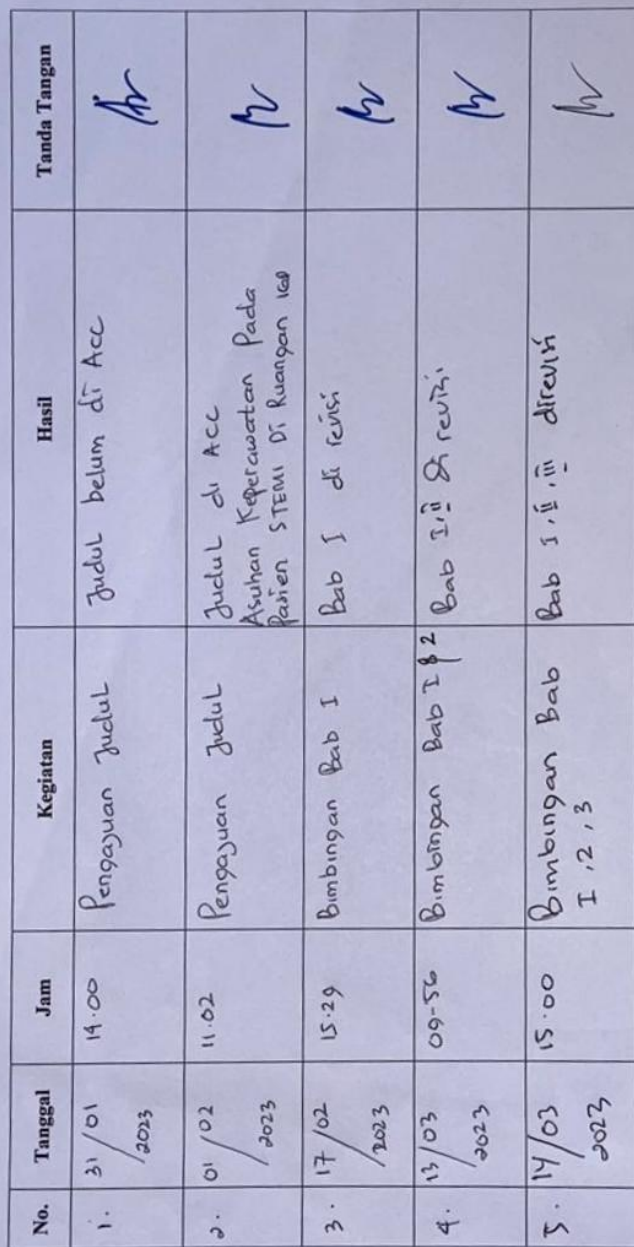 No. Tanggal Jam Kegiatan Hasil Tanda Tangan
1. 31/01/2023 14.00 Pengajuan Judul Judul belum di Acc
2. 01/02/2023 11.02 Pengajuan Judul Judul di Acc
Asuhan Keperawatan Pada
Pasien STEMI Di Ruangan IGD
3. 17/02/2023 15.29 Bimbingan Bab I Bab I di revisi
4. 13/03/2023 09-56 Bimbingan Bab I & 2 Bab I, II di revisi
5. 14/03 2023 15.00 Bimbingan Bab
I, 2, 3 Bab I, II, III direvisi